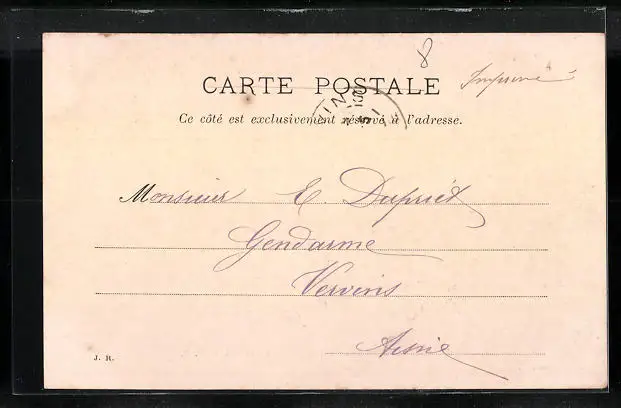 8
CARTE POSTALE
Imprimé
Ce côté est exclusivement réservé à l'adresse.
Monsieur E. Dupriét
Gendarme
Vervins
Aisne
J. R.